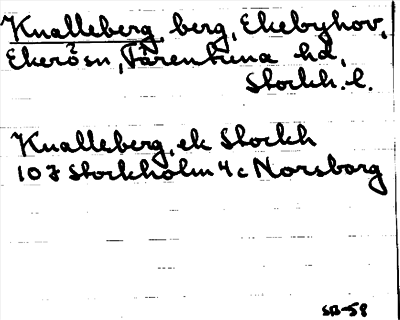 Knalleberg, berg, Ekebyhov,
Ekerö sn, Färentuna hd,
Stockh. l.
Knalleberg, ek Stockh
10 I Stockholm 4 c Norsborg
SB-58